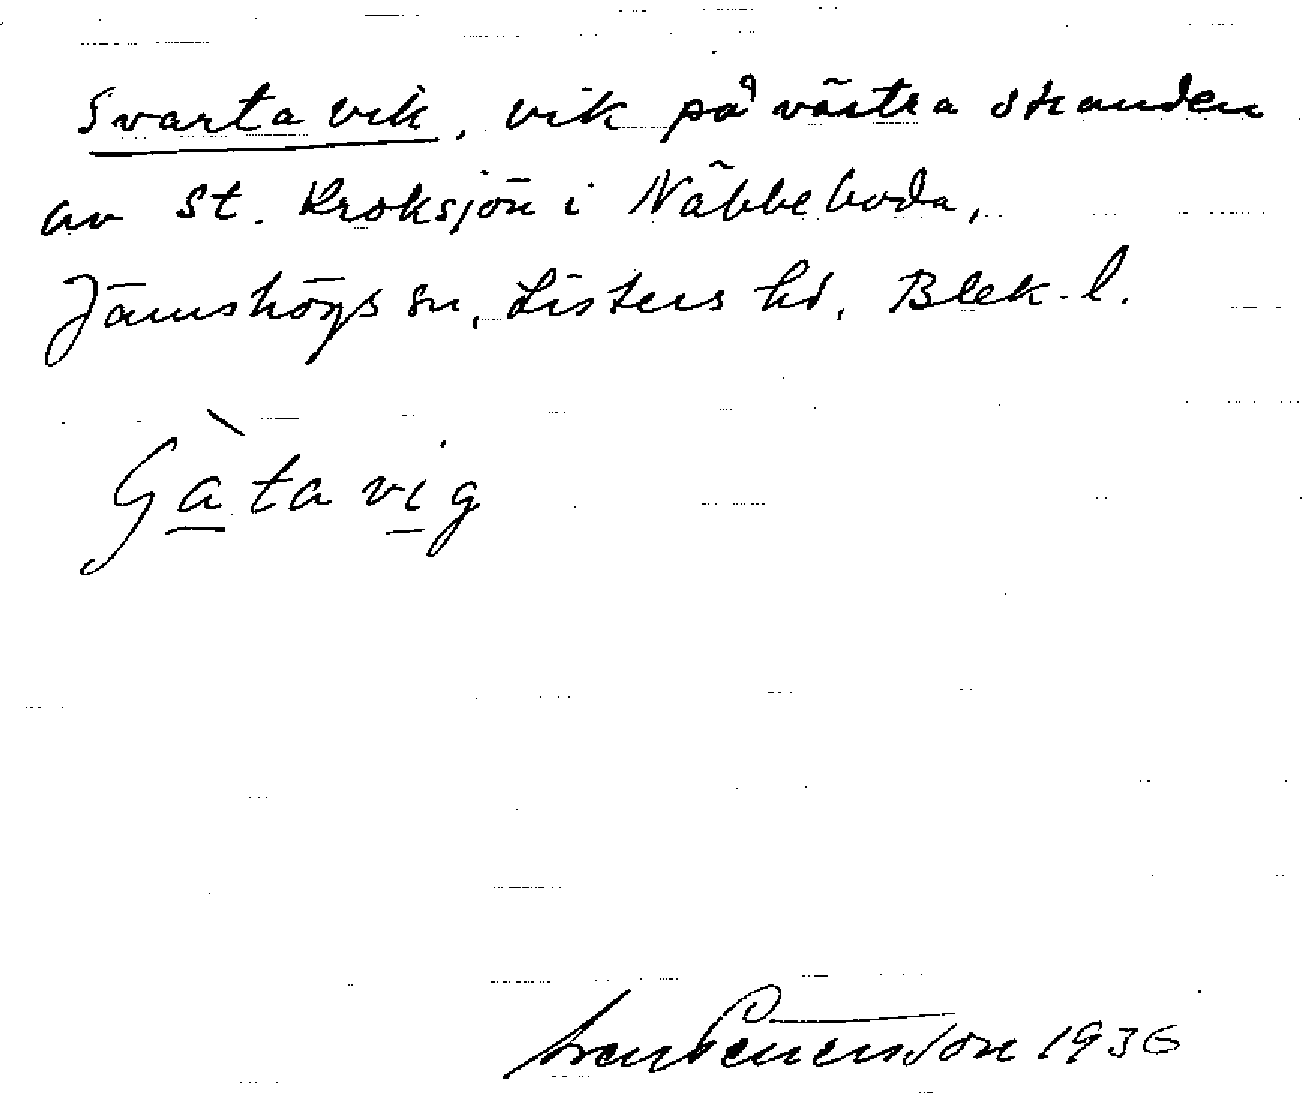 Svarta vik, vik på västra stranden
av St. Kroksjön i Näbbeboda,
Jämshögs sn, Listers hd, Blek. l.
Gàta vig
1936